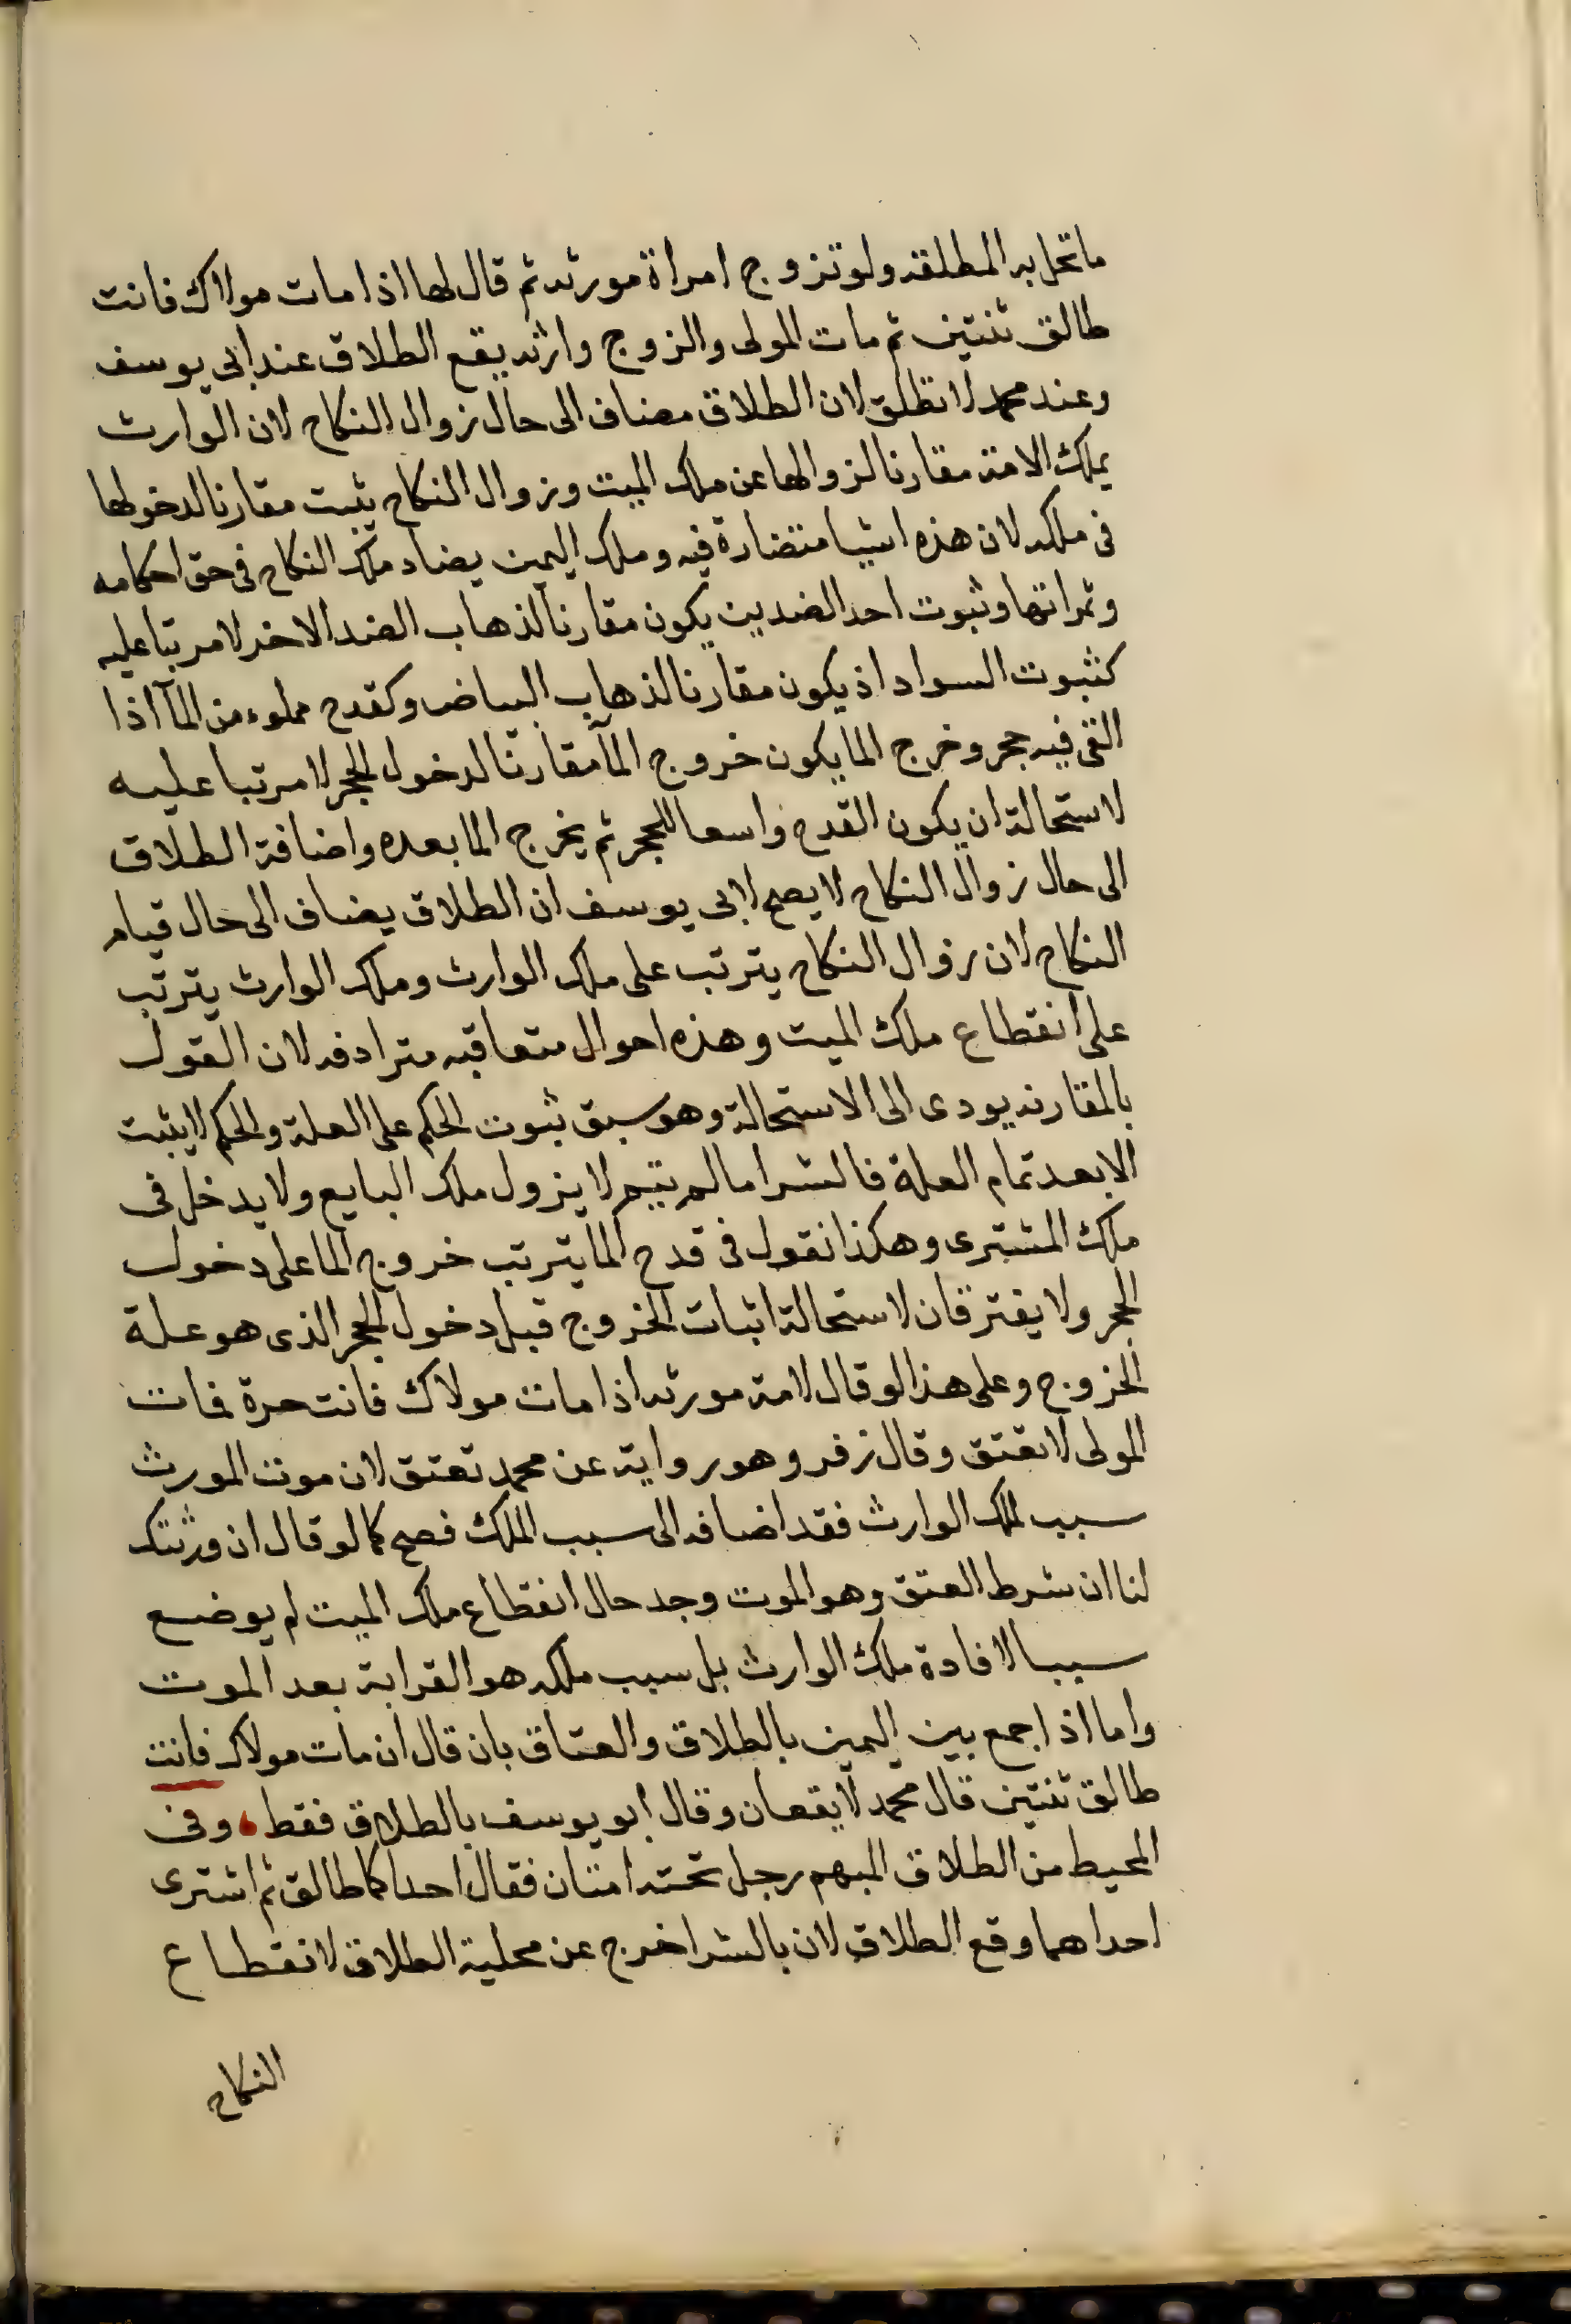 ما تحل به المطلقه ولو تزوج امراة مورثه ثم قال لها اذا مات مولاك فانت
طالق ثنتين ثم مات المولى والزوج وارثه يقع الطلاق عند ابى يوسف
وعند محمد لا تطلق لان الطلاق مضاف الى حال زوال النكاح لان الوارث
يملك الامة مقارنا لزوالها عن ملك الميت وزوال النكاح يثبت مقارنا لدخولها
فى ملكه لان هذه اشيا متضارة فيه وملك اليمين يضاد ملك النكاح فى حق احكامه
وثمراتها وثبوت احد الضدين يكون مقارنا لذهاب الضد الاخر لا مرتبا عليه
كثبوت السواد اذ يكون مقارنا لذهاب البياض وكقدح مملوء من المآ اذا
القى فيه حجر وخرج الما يكون خروج المآ مقارنا لدخول الحجر لا مرتبا عليه
لاستحالة ان يكون القدح واسعا للحجر ثم يخرج الما بعده واضافة الطلاق
الى حال زوال النكاح لا يصح لابى يوسف ان الطلاق يضاف الى حال قيام
النكاح لان زوال النكاح يترتب على ملك الوارث وملك الوارث يترتب
على انقطاع ملك الميت وهذه احوال متعاقبه مترادفه لان القول
بالمقارنه يودى الى الاستحالة وهو سبق ثبوت الحكم على العلة والحكم لا يثبت
الا بعد تمام العلة فالشرا ما لم يتم لا يزول ملك البايع ولا يدخل فى
ملك المشترى وهكذا نقول فى قدح الما يترتب خروج الما على دخول
الحجر ولا يفترقان لاستحالة اثبات الخروج قبل دخول الحجر الذى هو علة
الخروج وعلى هذا لو قال لامة مورثه اذا مات مولاك فانت حرة فمات
المولى لا تعتق وقال زفر وهو رواية عن محمد تعتق لان موت المورث
سبب لملك الوارث فقد اضافه الى سبب الملك فصح كما لو قال ان ورثتك
لنا ان شرط العتق وهو الموت وجد حال انقطاع ملك الميت لم يوضع
سببا لافادة ملك الوارث بل سبب ملكه هو القرابة بعد الموت
واما اذا جمع بين اليمين بالطلاق والعتاق بان قال ان مات مولاك فانت
طالق ثنتين قال محمد لا يقعان وقال ابو يوسف بالطلاق فقط وفى
المحيط من الطلاق المبهم رجل تحته امتان فقال احداكما طالق ثم اشترى
احداهما وقع الطلاق لان بالشرا خرج عن محلية الطلاق لانقطاع
النكاح